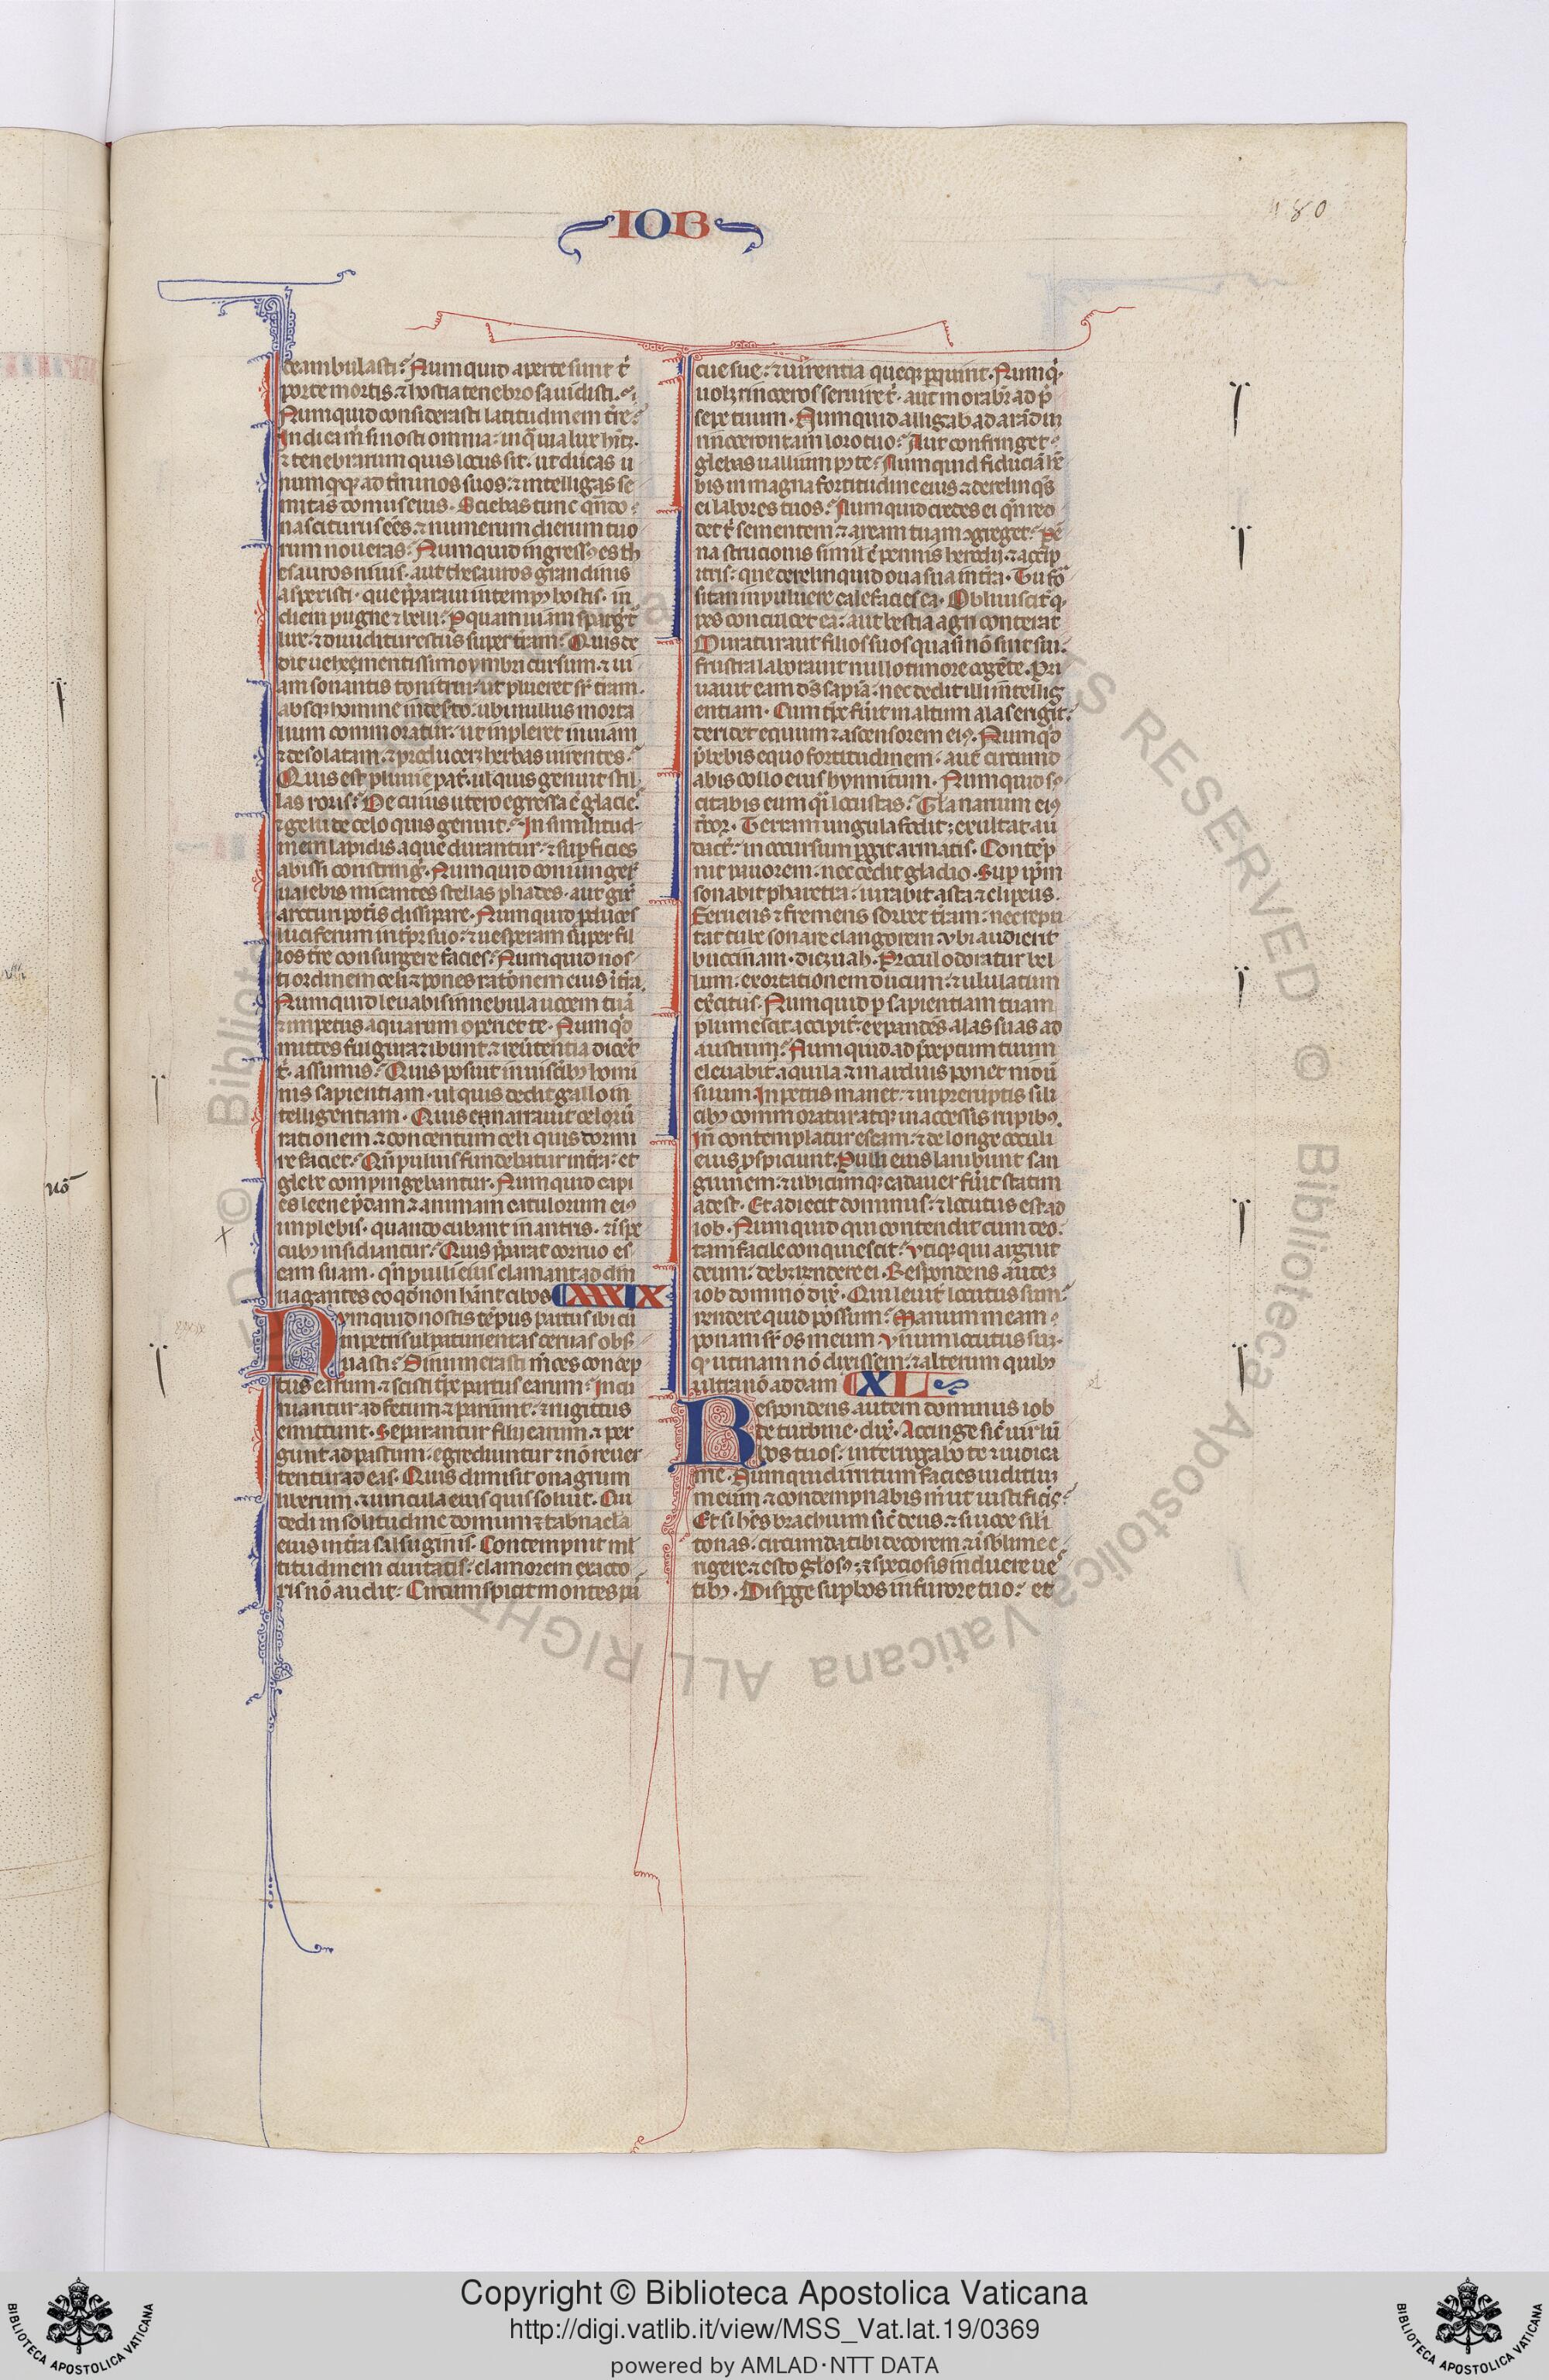 IOB
180
deambulasti? Numquid aperte sunt t̉
porte mortis. ⁊ hostia tenebrosa uidisti.
Numquid considerasti latitudinem t̉re?
Indica m̉ si nosti omnia: in q̉ uia lux hītꝫ.
⁊ tenebrarum quis locus sit. ut ducas u
num qͣqꝫ ad t̉minos suos: ⁊ intelligas se
mitas domus eius. Sciebas tunc qn̄do
nasciturus eēs. ⁊ numerum dierum tuo
rum noueras? Numquid ingressꝰ es th
esauros niuis. aut thesauros grandinis
aspexisti. que p̄paraui in tempꝰ hostis. in
diem pugne ⁊ belli? P quam uiam spargit̉
lux: ⁊ diuiditur estus super t̉ram? Quis de
dit uehementissimo ymbri cursum. ⁊ ui
am sonantis tonitrui: ut plueret sr̄ t̉ram.
absqꝫ homine in deserto: ubi nullus morta
lium commoratur: ut inpleret inuiam
⁊ desolatam. ⁊ produceret herbas uirentes?
Quis est pluuie pat̉. ul̉ quis genuit stil
las roris? De cuius utero egressa ē glacies.
⁊ gelu de celo quis genuit? In similitud
inem lapidis aque durantur: ⁊ sup̱ficies
abissi constring̉. Numquid coniungẻ
ualebis micantes stellas pliades. aut gir̄
arcturi pot̉is dissipare. Numquid p̱duces
luciferum in tp̱r suo: ⁊ uesperam super fil
ios t̉re consurgere facies? Numquid nos
ti ordinem celi: ⁊ pones rat̉onem eius ī t̉ra.
Numquid leuabis in nebula uocem tuā
⁊ impetus aquarum operiet te. Numq̉d
mittes fulgura: ⁊ ibunt. ⁊ reūtentia dicēt
t̉. assumus? Quis posuit in uisc̄ibꝰ homi
nis sapientiam. ul̉ quis dedit gallo in
telligentiam. Quis enarrauit celorū
rationem. ⁊ concentum celi quis dormi
re faciet? Qn̄ puluis fundebatur in t̉ra: et
glebe compingebantur. Numquid capi
es leene p̄dam: ⁊ animam catulorum eiꝰ
implebis. quando cubant in antris. ⁊ ī spe
cubꝰ insidiantur? Quis p̄parat coruo es
cam suam. qn̄ pulli eius clamant ad dm̄
uagantes eo qd̓ non hānt cibos. XXXIX
Numquid nostis tēpus partus ibicū
in petris ul̉ parturientes ceruas obs̉
uasti? Dinumerasti m̄ces concep
tus earum. ⁊ scisti tp̱r partus earum? Incu
ruantur ad fetum ⁊ pariunt: ⁊ rugitus
emittunt. Separantur filij earum. ⁊ per
gunt ad pastum. egrediuntur ⁊ nō reuer
tentur ad eas. Quis dimisit onagrum
liberum. ⁊ uincula eius quis soluit. Cui
dedi in solitudine domum ⁊ tabnacla
eius in t̉ra salsuginis. Contempnit ml̉
titudinem ciuitatis: clamorem exacto
ris nō audit: Circumspicit montes pa
cue sue: ⁊ uir̄entia queqꝫ p̱quirit. Numqͥ
uolꝫ rinoceros seruire t̉. aut morab̄r ad p̄
sepe tuum. Numquid alligab̉ ad arādū
rinocerontam loro tuo? Aut confringet
glebas uallium p̱ te? Numquid fiduciā hē
bis in magna fortitudine eius ⁊ derelinq̉s
ei labores tuos? Numquid credes ei qn̄ red
det t̉ sementem ⁊ aream tuam ꝯgreget? Pē
na strucionis simil̉ ē pennis herodii: ⁊ accip
itris: que derelinquid oua sua in t̉ra. Tu for̄
sitan in puluere calefacies ea. Obliuiscit̉ qͩ
pes conculcet ea: aut bestia agri conterat
Duratur aut filios suos quasi nō sint sui.
frustra laborauit nullo timore cogēte. Pri
uauit eam ds̄ sapiā. nec dedit illi intellig
entiam. Cum tp̱r fūit in altum alas erigit:
deridet equum ⁊ ascensorem eiꝰ. Numqͩ
p̄bebis equo fortitudinem. aut̉ circumd
abis collo eius hynnitum. Numquid su
citabis eum qͣi locustas? Gl̄a narium eiꝰ
t̉ror. Terram ungula fodit: exultat au
dact̉: in occursum p̱git armatis. Contēp
nit pauorem: nec cedit gladio. Sup̱ ip̄m
sonabit pharetra: uibrabit asta ⁊ clipeus.
Feruens ⁊ fremens sorbet t̉ram: nec repu
tat tube sonare clangorem: ubi audierit
buccinam. dicꝫ uah. Procul odoratur bel
lum: exortationem ducum: ⁊ ululatum
ex̄citus. Numquid p̱ sapientiam tuam
plumescit accipit̉: expandēs alas suas ad
austrum? Numquid ad p̄ceptum tuum
eleuabit̉ aquila ⁊ in arduis ponet nidū
suum. In petris manet: ⁊ in preruptis sili
cibꝰ commoratur: atqꝫ in accessis rupibꝰ.
In̄ contemplatur escam: ⁊ de longe oculi
eius p̱spiciunt. Pulli eius lambunt san
guinem: ⁊ ubicumqꝫ cadauer fūit statim
adest. Et adiecit dominus: ⁊ locutus est ad
iob. Numquid qui contendit cum deo:
tam facile conquiescit? Vtiqꝫ qui arguit
deum: debꝫ rn̄dere ei. Respondens aūtꝫ
iob domino dix̄. Qui leuit̉ locutus sum:
rn̄dere quid possum? Manum meam
ponam sr̄ os meum. Vnum locutus sū.
qͩ utinam nō dixissem: ⁊ alterum quibꝰ
ultra nō addam. XL
Respondens autem dominus iob
de turbine. dix̄. Accinge sic̄ uir lū
bos tuos: interrogabo te: ⁊ indica
m̉. Numquid irritum facies iuditiū
meum: ⁊ contempnabis m̄ ut iustificeris?
Et si hēs brachium sic̄ deus: ⁊ si uoce sili
tonas. circumda tibi decorem: ⁊ ī sblime e
rigere: ⁊ esto gl̄osꝰ: ⁊ speciosis induere ues
tibꝰ. Disp̱ge sup̱bos in furore tuo: et
Copyright © Biblioteca Apostolica Vaticana
http://digi.vatlib.it/view/MSS_Vat.lat.19/0369
powered by AMLAD·NTT DATA
BIBLIOTECA APOSTOLICA VATICANA
BIBLIOTECA APOSTOLICA VATICANA